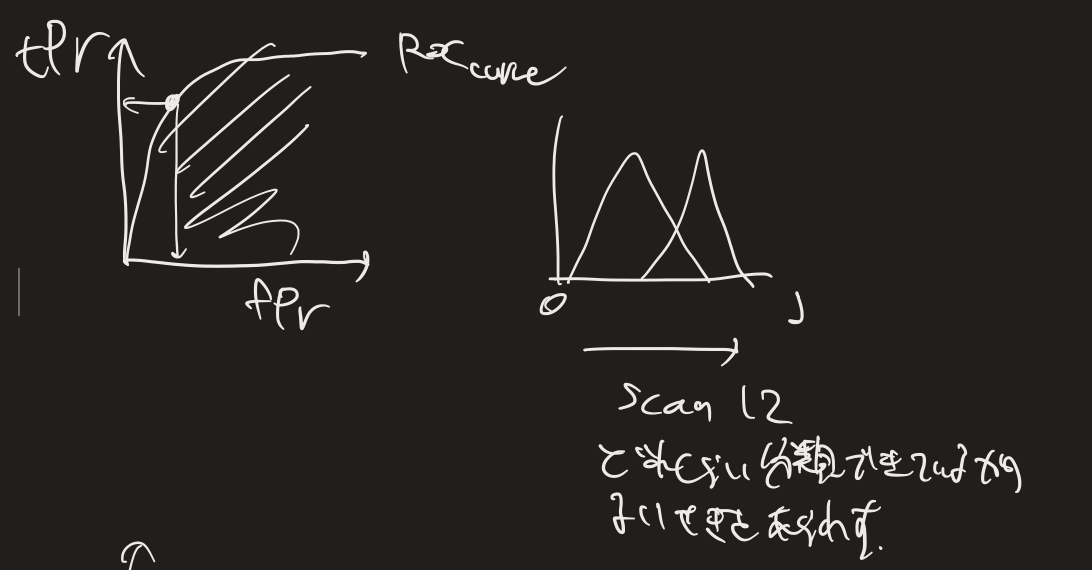 tPr
ROC curve
fPr
0
1
scan して
どれくらい分類できているか
よいせきをあらわす.